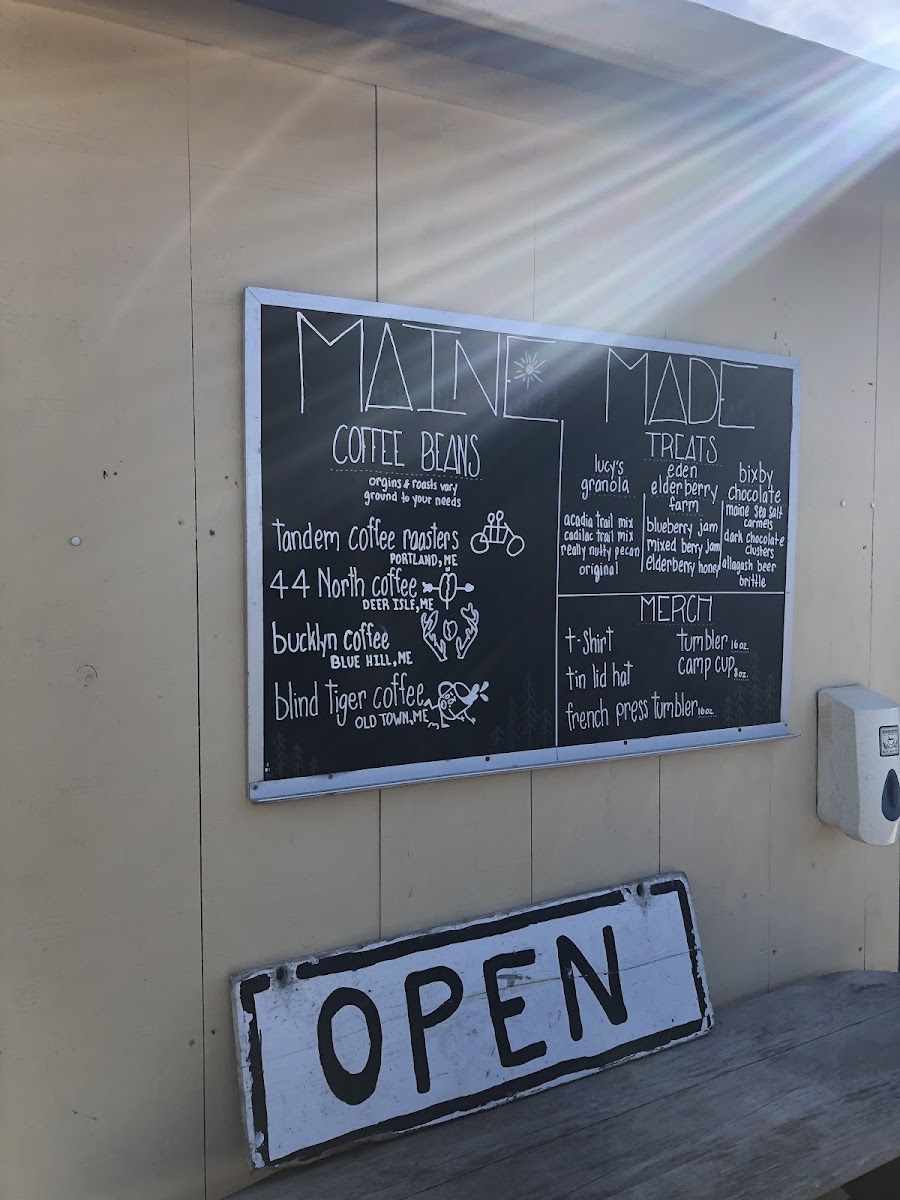 MAINE MADE
COFFEE BEANS
orgins & roasts vary
ground to your needs
tandem coffee roasters
PORTLAND, ME
44 North coffee
DEER ISLE, ME
bucklyn coffee
BLUE HILL, ME
blind tiger coffee
OLD TOWN, ME
TREATS
lucy's
granola
acadia trail mix
cadilac trail mix
really nutty pecan
original
eden
elderberry
farm
blueberry jam
mixed berry jam
elderberry honey
bixby
chocolate
maine sea salt
carmels
dark chocolate
clusters
allagash beer
brittle
MERCH
t-shirt
tin lid hat
french press tumbler 16oz.
tumbler 16oz.
camp cup 8oz.
OPEN